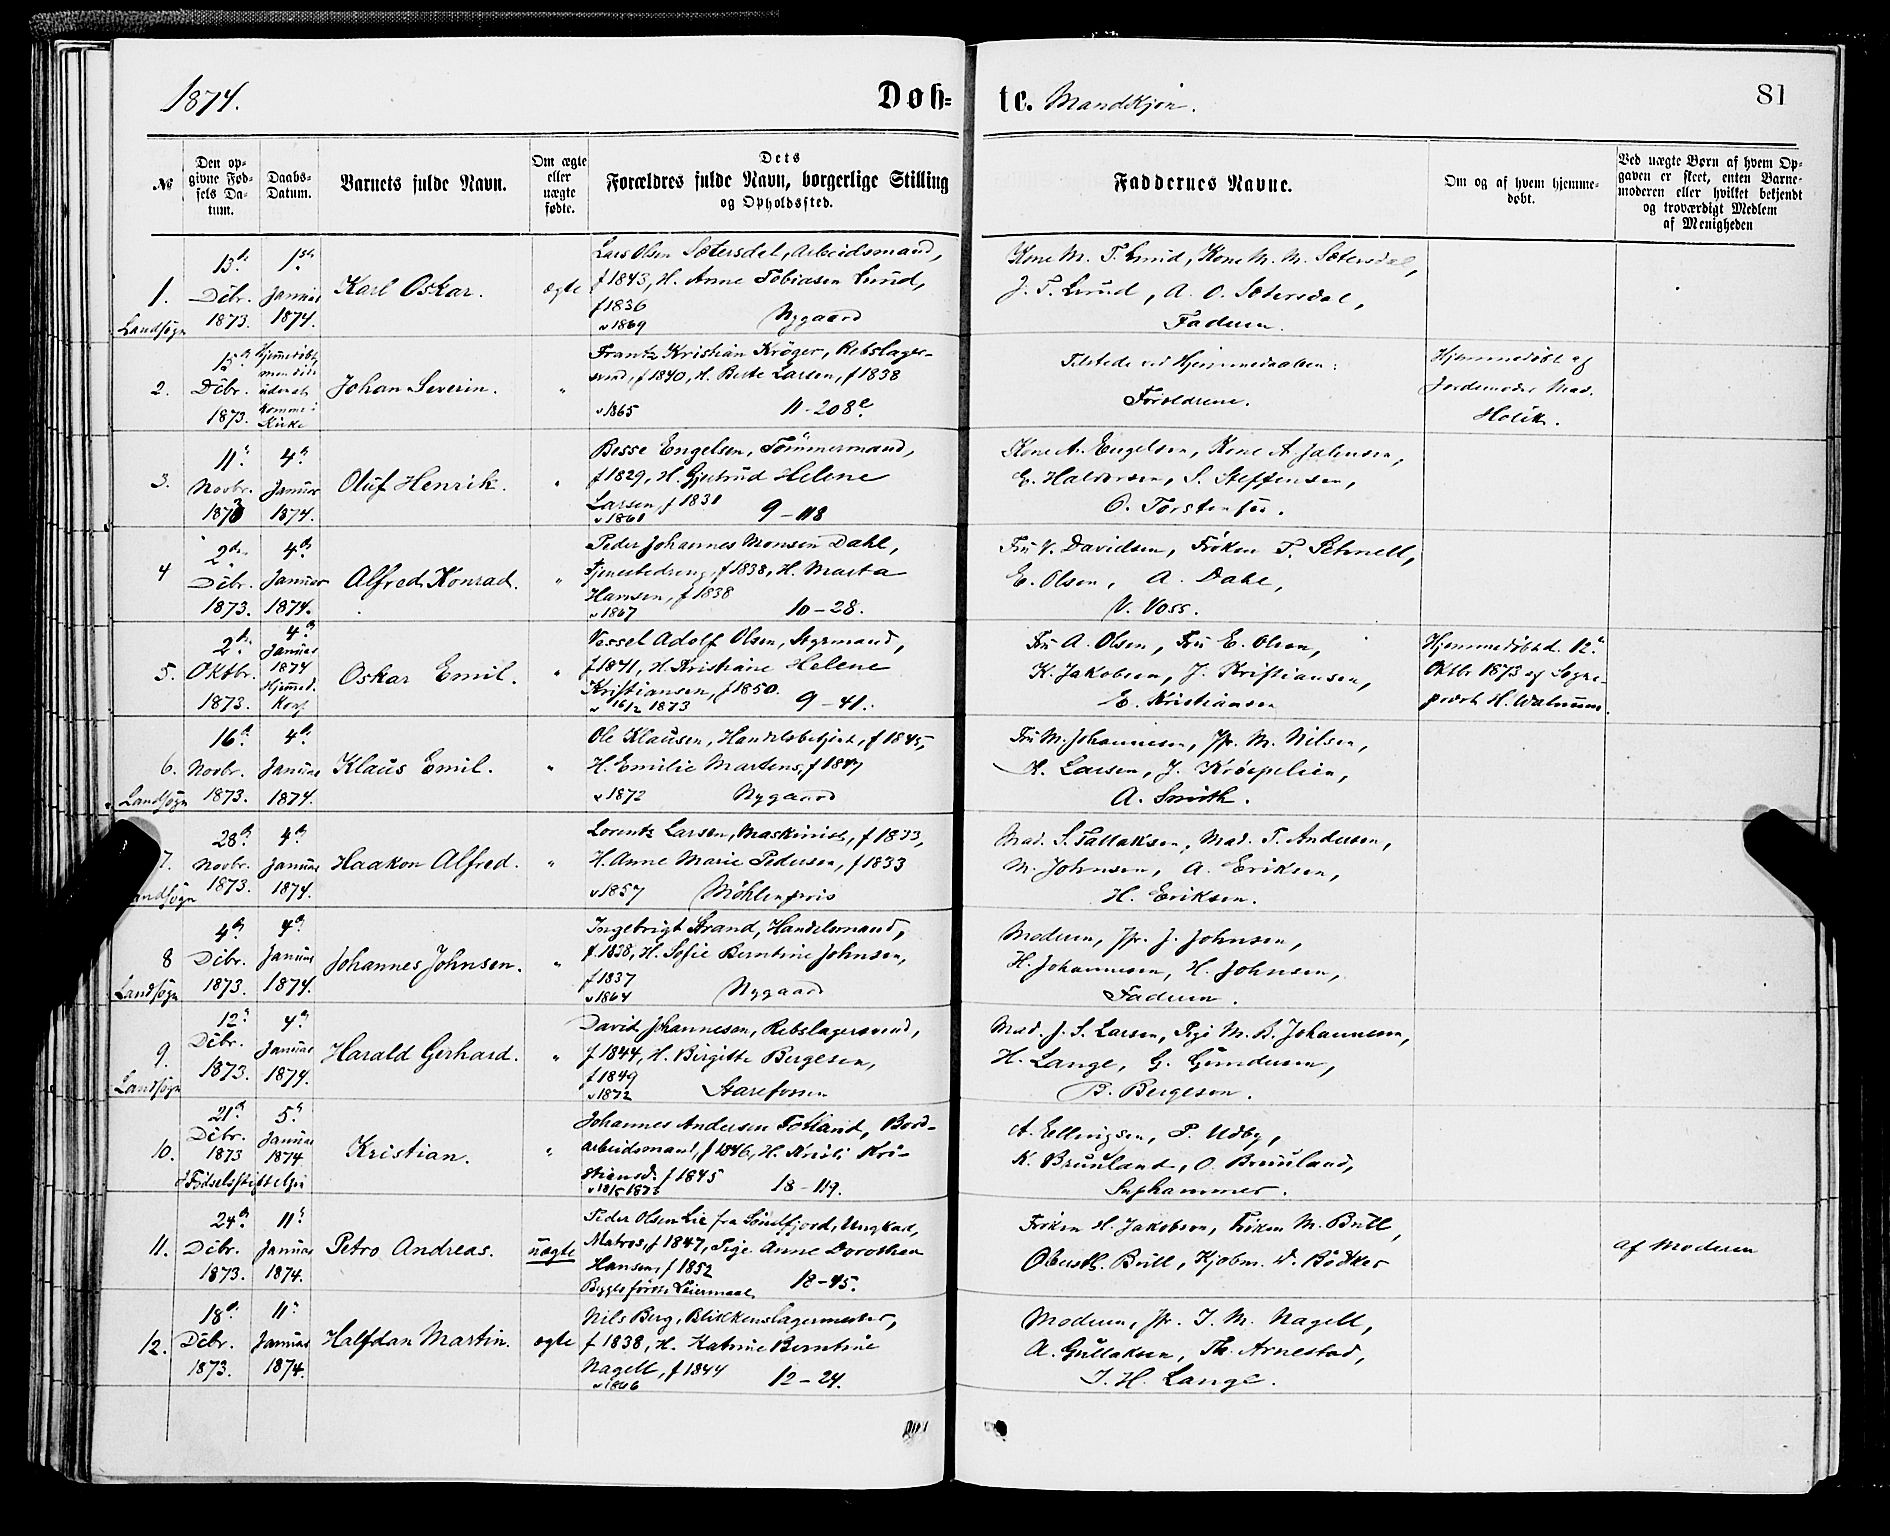 1874.
Døb=
te. Mandkjøn.
81
No
Den op-
givne Fød-
sels Da-
tum.
Daabs-
Datum.
Barnets fulde Navn.
Om ægte
eller
uægte
fødte.
Dets
Forældres fulde Navn, borgerlige Stilling
og Opholdssted.
Faddernes Navne.
Om og af hvem hjemme-
døbt.
Ved uægte Børn af hvem Op-
gaven er skeet, enten Barne-
moderen eller hvilket bekjendt
og troværdigt Medlem
af Menigheden
1.
Landsogn
13de
Dcbr.
1873.
1ste
Januar
1874.
Karl Oskar.
ægte
Lars Olsen Sætersdal, Arbeidsmand,
f 1843, H. Anne Tobiasen Lund,
f 1836
v 1869 Nygaard
Kone M. T. Lund, Kone M. M. Sætersdal,
J. T. Lund, A. O. Sætersdal,
Faderen.
2.
15de
Dcbr.
1873.
Hjemmedøbt,
men døde
uden at
komme i
Kirke
Johan Severin.
"
Frantz Kristian Krøger, Rebslager-
svend, f 1840, H. Berte Larsen, f 1838
v 1865 11-208e.
Tilstede ved Hjemmedaaben:
Forældrene.
Hjemmedøbt af
Jordemoder Mad.
Holck.
3.
11te
Novbr.
1873
4de
Januar
1874.
Oluf Henrik.
"
Besse Engelsen, Tømmermand,
f 1829, H. Gjertrud Helene
Larsen, f 1831
v 1860 9-118
Kone A. Engelsen, Kone A. Johnsen,
E. Haldorsen, S. Steffensen,
O. Torstensen.
4
2den
Dcbr.
1873.
4de
Januar
1874.
Alfred Konrad.
"
Peder Johannes Monsen Dahl,
Tjenestedreng, f 1838, H. Marta
Hansen, f 1838
v 1867 10-28.
Fru V. Davidsen, Frøken T. Schnell,
E. Olsen, A. Dahl,
V. Voss.
5.
2den
Oktbr.
1873.
4de
Januar
1874
Hjemmed.
Konf.
Oskar Emil.
"
Vessel Adolf Olsen, Styrmand,
f 1841, H. Kristiane Helene
Kristiansen, f 1850.
v 16/2 1873 9-41.
Fru A. Olsen, Fru E. Olsen,
K. Jakobsen, J. Kristiansen,
E. Kristiansen
Hjemmedøbt d. 12te
Oktbr 1873 af Sogne-
præst H. Walnum.
6.
Landsogn
16de
Novbr.
1873.
4de
Januar
1874.
Klaus Emil.
"
Ole Klausen, Handelsbetjent, f 1845,
H. Emilie Martens, f 1847
v 1872 Nygaard
Fru M. Johannesen, Jfr. M. Nilsen,
A. Larsen, J. Krøepelien,
A. Smith.
7.
Landsogn
28de
Novbr.
1873.
4de
Januar
1874.
Haakon Alfred.
"
Lorentz Larsen, Maskinist, f 1833,
H. Anne Marie Pedersen, f 1833
v 1857 Møhlenpris
Mad. S. Tallaksen, Mad. T. Andersen,
M. Johnsen, A. Eriksen,
H. Eriksen.
8
Landsogn
4de
Dcbr.
1873.
4de
Januar
1874.
Johannes Johnsen.
"
Ingebrigt Strand, Handelsmand,
f. 1838, H. Sofie Berntine Johnsen,
f 1837
v 1864 Nygaard
Moderen, Jfr. J. Johnsen,
H. Johannesen, H. Johnsen,
Faderen.
9
Landsogn
12te
Dcbr.
1873.
4de
Januar
1874.
Harald Gerhard.
"
David Johannesen, Rebslagersvend,
f 1844, H. Birgitte Bergesen,
f 1849
v 1872 Starefossen
Mad. J. S. Larsen, Pige M. B. Johannesen,
H. Lange, G. Gundersen,
B. Bergesen.
10.
21de
Dcbr.
1873
i Fødselsstiftelsen
5te
Januar
1874
Kristian.
"
Johannes Andersen Totland, Bord-
arbeidsmand, f 1846, H. Kristi Kri-
stiansd. f 1845
v 18/5 1873 18-119.
A. Ellingsen, P. Udby,
K. Bruuland, O. Bruuland,
Sephammer.
11.
24de
Dcbr.
1873.
11te
Januar
1874.
Petro Andreas.
uægte
Peder Olsen Lie fra Søndfjord, Ungkarl,
Matros, f 1847, Pige Anne Dorothea
Hansen, f 1852
Begges første Leiermaal. 18-45.
Frøken H. Jakobsen, Frøken M. Bull,
Oberstl. Bull, Kjøbm. W. Bødker
af Moderen
12.
18de
Dcbr.
1873.
11te
Januar
1874.
Halfdan Martin.
ægte
Nils Berg, Blikkenslagermester,
f 1838, H. Katrine Berntine
Nagell, f 1844
v 1866 12-24.
Moderen, Jfr. I. M. Nagell,
A. Gullaksen, Th. Arnestad,
J. H. Lange.